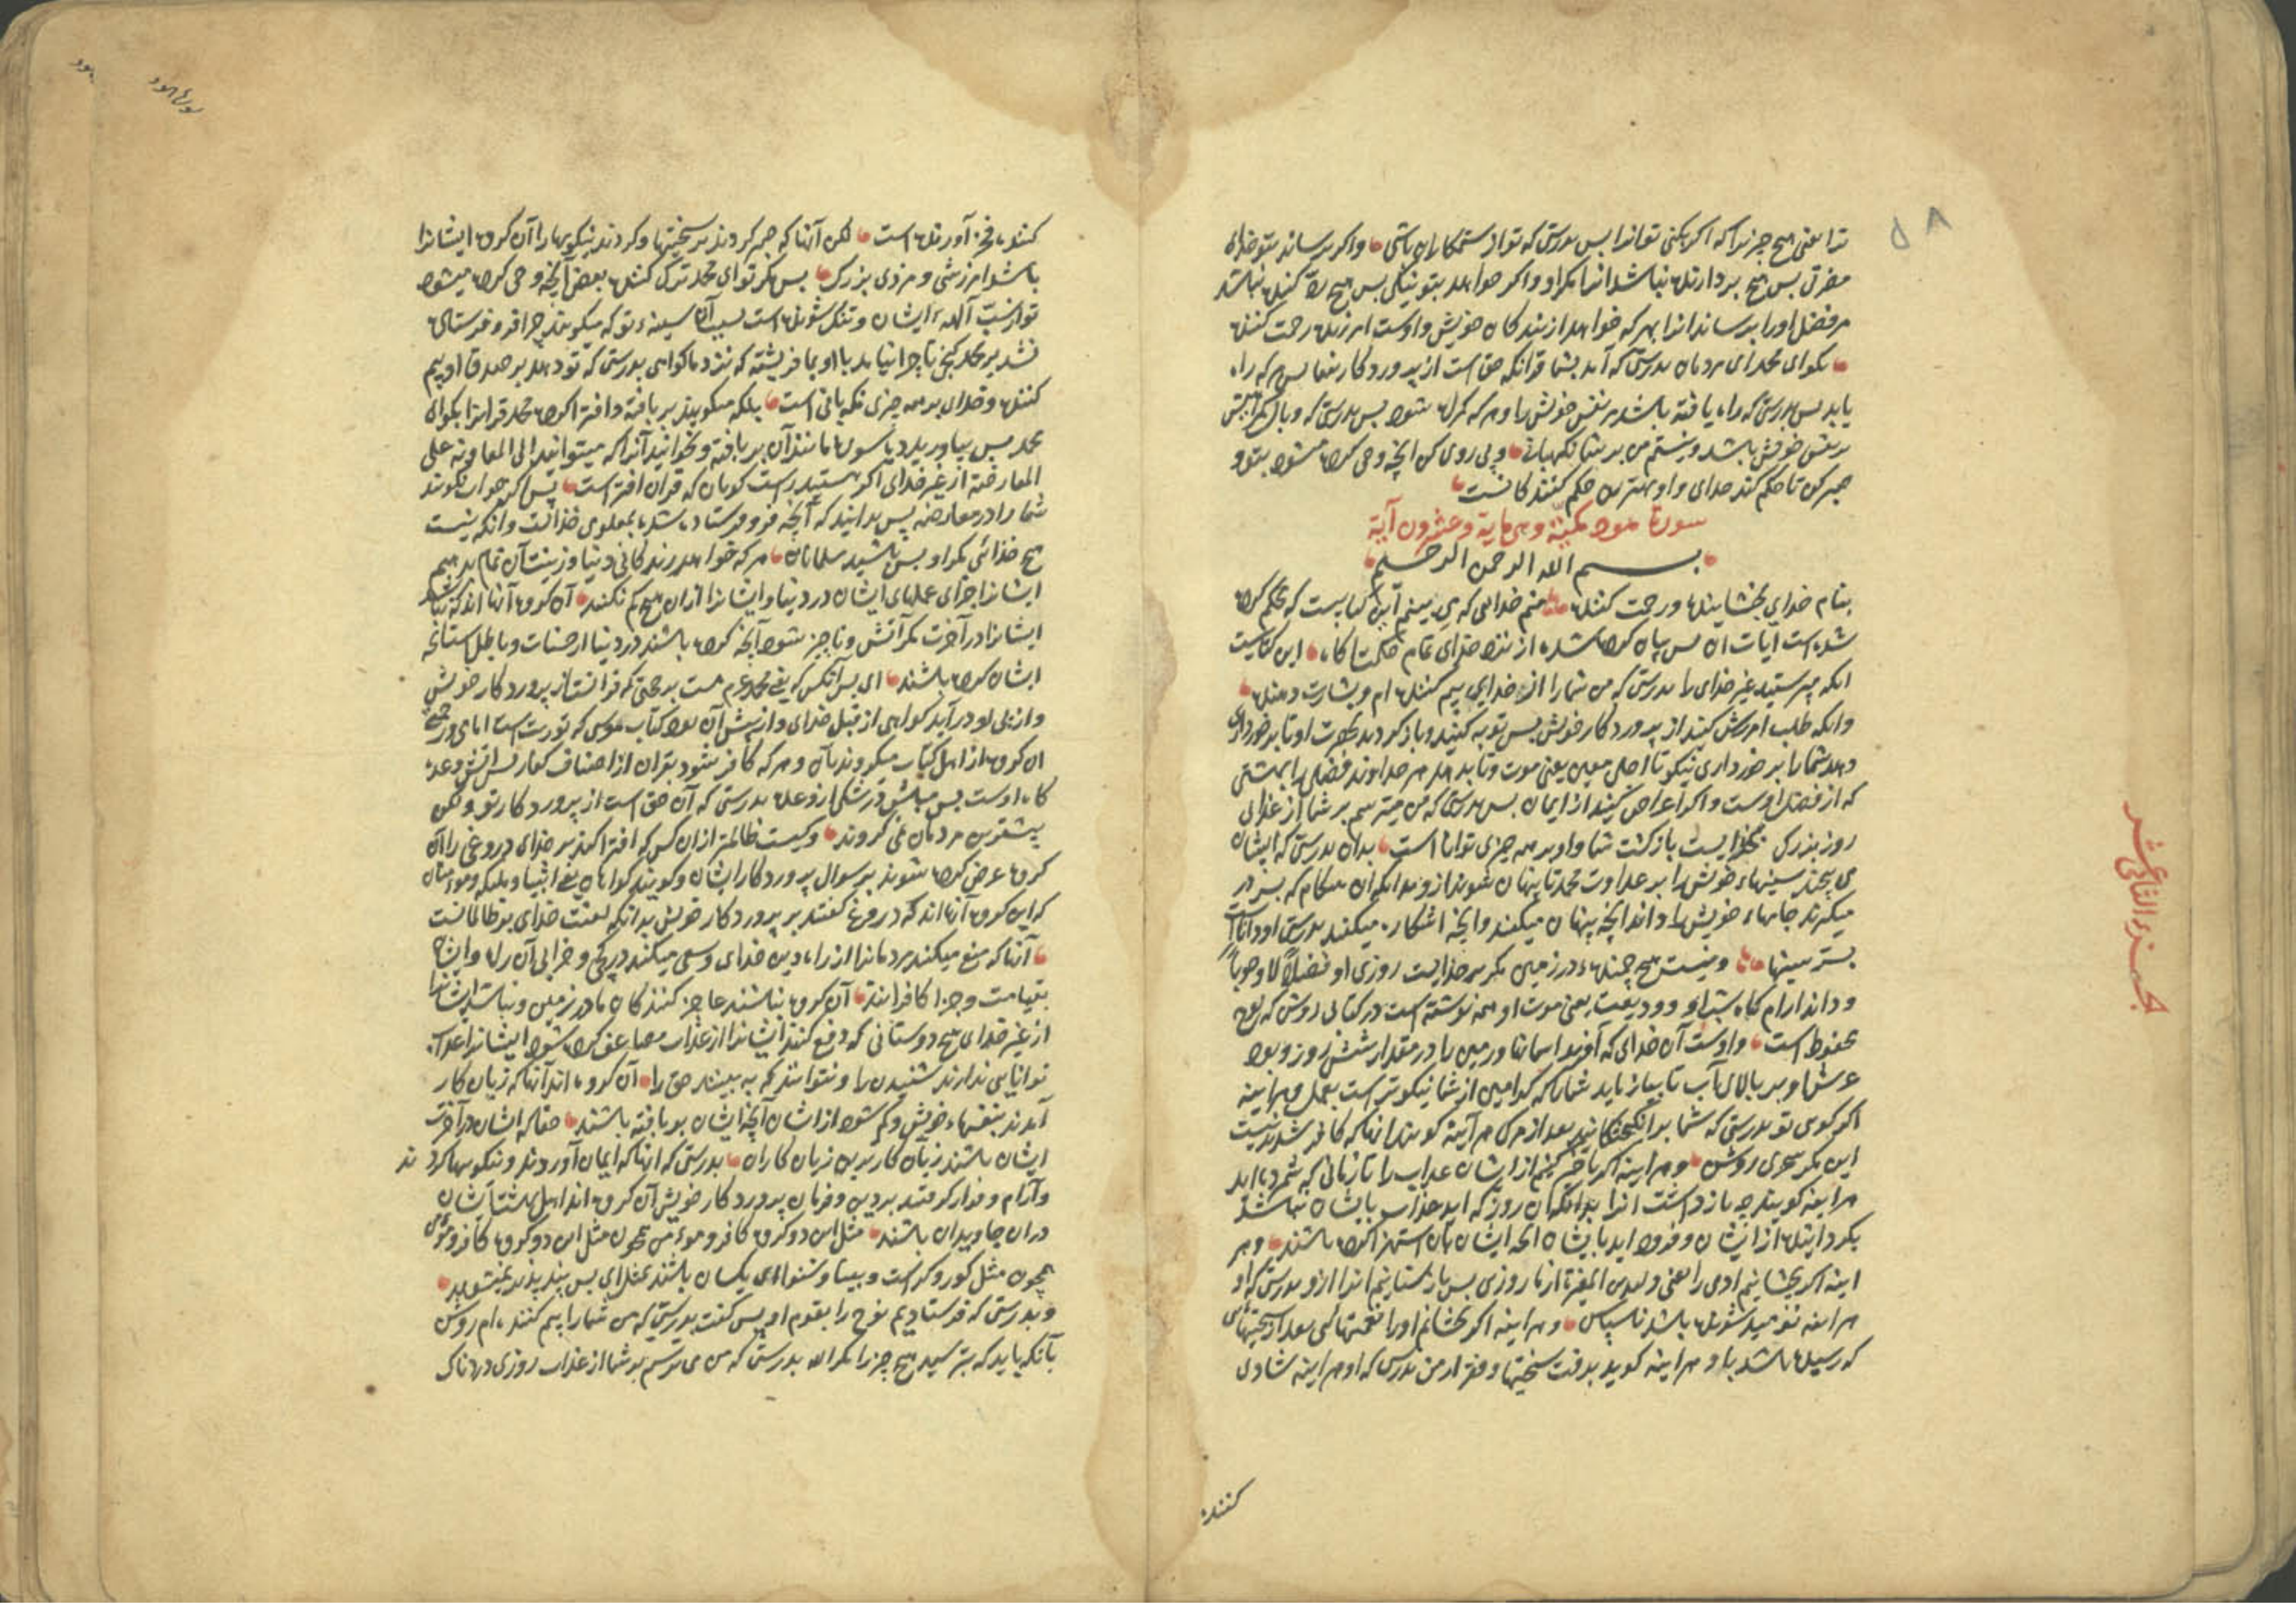 ترا یعنی هیچ چیز ترا که اکر بکنی توانرا پس بدرستی که تو از ستمکاران باشی و اکر برساند بتو خدای
مضرتی پس هیچ بردارنده نباشد انرا مکر او و اکر خواهد بتو نیکی پس هیچ رد کننده نباشد
مر فضل او را برساند انرا بهر که خواهد از بندکان خویش و اوست امرزنده رحمت کننده
بکو ای محمد ای مردمان بدرستی که آمد بشما قرانکه حق است از پروردکار شما پس هر که راه
یابد پس بدرستی که راه یافته باشد بر نفس خویش را و هر که کمراه شود پس بدرستی که وبال کمراهیش
بر نفس خویش باشد و نیستم من بر شما نکهبانی و پی روی کن انچه وحی کرده میشود بتو و
صبر کن تا حکم کند خدای و او بهترین حکم کنندکانست
سورة هود مکیة و هی مایة و عشرون آیة
بسم الله الرحمن الرحیم
بنام خدای بخشاینده و رحمت کننده منم خدایی که می بینم این کتابیست که محکم کرده
شده است آیات ان پس بیان کرده شده از نزد خدای تمام حکمت اکاه این کتابیست
انکه مپرستید غیر خدای را بدرستی که من شما را از خدای بیم کننده ام و بشارت دهنده
وانکه طلب امرزش کنید از پروردکار خویش پس توبه کنید و باز کردید بطرف او تا برخورداری
دهد شما را برخورداری نیکو تا اجلی معین یعنی موت و تا بدهد هر خداوند فضلی را بهشتی
که از فضل اوست و اکر اعراض کنید از ایمان پس بدرستی که من میترسم بر شما از عذابی
روز بزرک بخدایست بازکشت شما و او بر همه چیزی تواناست بدان بدرستی که ایشان
می پیچند سینهاء خویش را بر عداوت محمد تا پنهان شوند ازو بدانکه ان هنکام که بسر در
میکیرند جامهاء خویش را داند انچه پنهان میکنند و انچه اشکاره میکنند بدرستی او داناست
بسر سینها و نیست هیچ جنبنده در زمین مکر بر خدایست روزی او فضلاً لا وجوباً
و داند ارام کاه شب او و ودیعت یعنی موت او همه نوشته است در کتابی روشن که لوح
محفوظ است و اوست آن خدای که آفرید اسمانها و زمین را در مقدار شش روز و بود
عرش او بر بالای آب تا بیازماید شما را که کدامین از شما نیکوتر است بعمل و هر اینه
اکر کوی تو بدرستی که شما برانکیختکانید بعد از مرک هر آینه کویند انها که کافر شدند نیست
این مکر سحری روشن و هر اینه اکر تاخیر کنیم از ایشان عذاب را تا زمانی که شمرده اید
هر اینه کویند چه باز داشت انرا بدانکه ان روز که اید عذاب بایشان نباشد
بکردانیده از ایشان و فرود اید بایشان انچه ایشان بان استهزا کرده باشند و هر
اینه اکر بچشانیم ادمی را یعنی ولید بن المغیرة از ما روزی پس باز ستانیم انرا ازو بدرستی که او
هر اینه نومید شونده باشد ناسپاس و هر اینه اکر بچشانم او را نعمتهائی بعد از سختیهائی
که رسیده باشد باو هر اینه کوید برفت سختیها و فقر از من بدرستی که او هر اینه شادی
کننده
۵۸
الجزء الثانی عشر
سورة هود
هود
کننده فخر آورنده است لکن آنها که صبر کردند بر سختیها و کردند نیکویها را آن کروه ایشانرا
باشد امرزشی و مزدی بزرک پس مکر تو ای محمد ترک کننده بعض آنچه وحی کرده میشود
تو از سبّ آلهه ایشان و تنک شونده است بسبب آن سینهء تو که میکویند چرا فرو فرستاده
نشد بر محمد کنجی یا چرا نیامد با او بما فریشته که نزد ما کواهی بدرستی که تو دهد بر صدق او بیم
کننده و خدای بر همه چیزی نکهبانی است بلکه میکویند بر بافته و افترا کرده محمد قرانرا بکوای
محمد پس بیاورید ده سوره مانند آن بر بافته و بخوانید آنرا که میتوانید الی المعاونة علی
المعارضة از غیر خدای اکر هستید راست کویان که قران افتراست پس اکر جواب نکویند
شما را در معارضه پس بدانید که آنچه فرو فرستاده شد بمعلومی خداست و انکه نیست
هیچ خدائی مکر او پس باشید مسلمانان هر که خواهد زندکانی دنیا و زینت آن تمام بدهیم
ایشانرا جزای عملهای ایشان در دنیا و ایشانرا ازان هیچ کم نکنند آن کروه آنها اند که نباشد
ایشانرا در آخرت مکر آتش و ناچیز شود آنچه کرده باشند در دنیا از حسنات و باطل است انچه
ایشان کرده باشند ای پس آنکس که یعنی محمد عم هست بر حجتی که قرانست از پروردکار خویش
و از پی او در آید کواهی از قبل خدای و از پیش آن بود کتاب موسی که توریت است امامی و رحمتی
ان کروه از اهل کتاب میکروند بآن و هر که کافر شود بقران از اصناف کفار پس آتش وعده
کاه اوست پس مباش در شکی از وعده بدرستی که آن حق است از پروردکار تو و لکن
بیشترین مردمان نمی کروند و کیست ظالمتر ازان کس که افترا کند بر خدای دروغی را آن
کروه عرض کرده شوند بر سوال پروردکار ایشان و کویند کواهان یعنی انبیا و ملیکه و مومنان
که این کروه آنها اند که دروغ کفتند بر پروردکار خویش بدانکه لعنت خدای بر ظالمانست
آنها که منع میکنند مردمانرا از راه دین خدای و سعی میکنند در کجی و خرابی آن راه و ایشان
بقیامت و جزا کافرانند آن کروه نباشند عاجز کنندکان ما در زمین و نباشد ایشانرا
از غیر خدای هیچ دوستانی که دفع کنند ایشانرا از عذاب مضاعف کرده شود ایشانرا عذاب
توانایی ندارند شنیدن را و نتوانند که به بینند حق را آن کروه اند آنها که زیان کار
آمدند بنفسهاء خویش و کم شود از ایشان آنچه ایشان بر بافته باشند حقا که ایشان در آخرت
ایشان باشند زیان کارترین زیان کاران بدرستی که انها که ایمان آوردند و نیکویها کردند
و آرام و قرار کرفتند بر دین و فرمان پروردکار خویش آن کروه اند اهل بهشت ایشان
دران جاویدان باشند مثل این دو کروه کافر و مومن همچون مثل این دو کروه کافر و مومن
همچون مثل کور و کر است و بینا و شنوا ای یکسان باشند بمثل ای پس پند پذیر نمیشوید
و بدرستی که فرستادیم نوح را بقوم او پس کفت بدرستی که من شما را بیم کننده ام روشن
بآنکه باید که نپرستید هیچ چیز را مکر الله بدرستی که من می ترسم بر شما از عذاب روزی دردناک